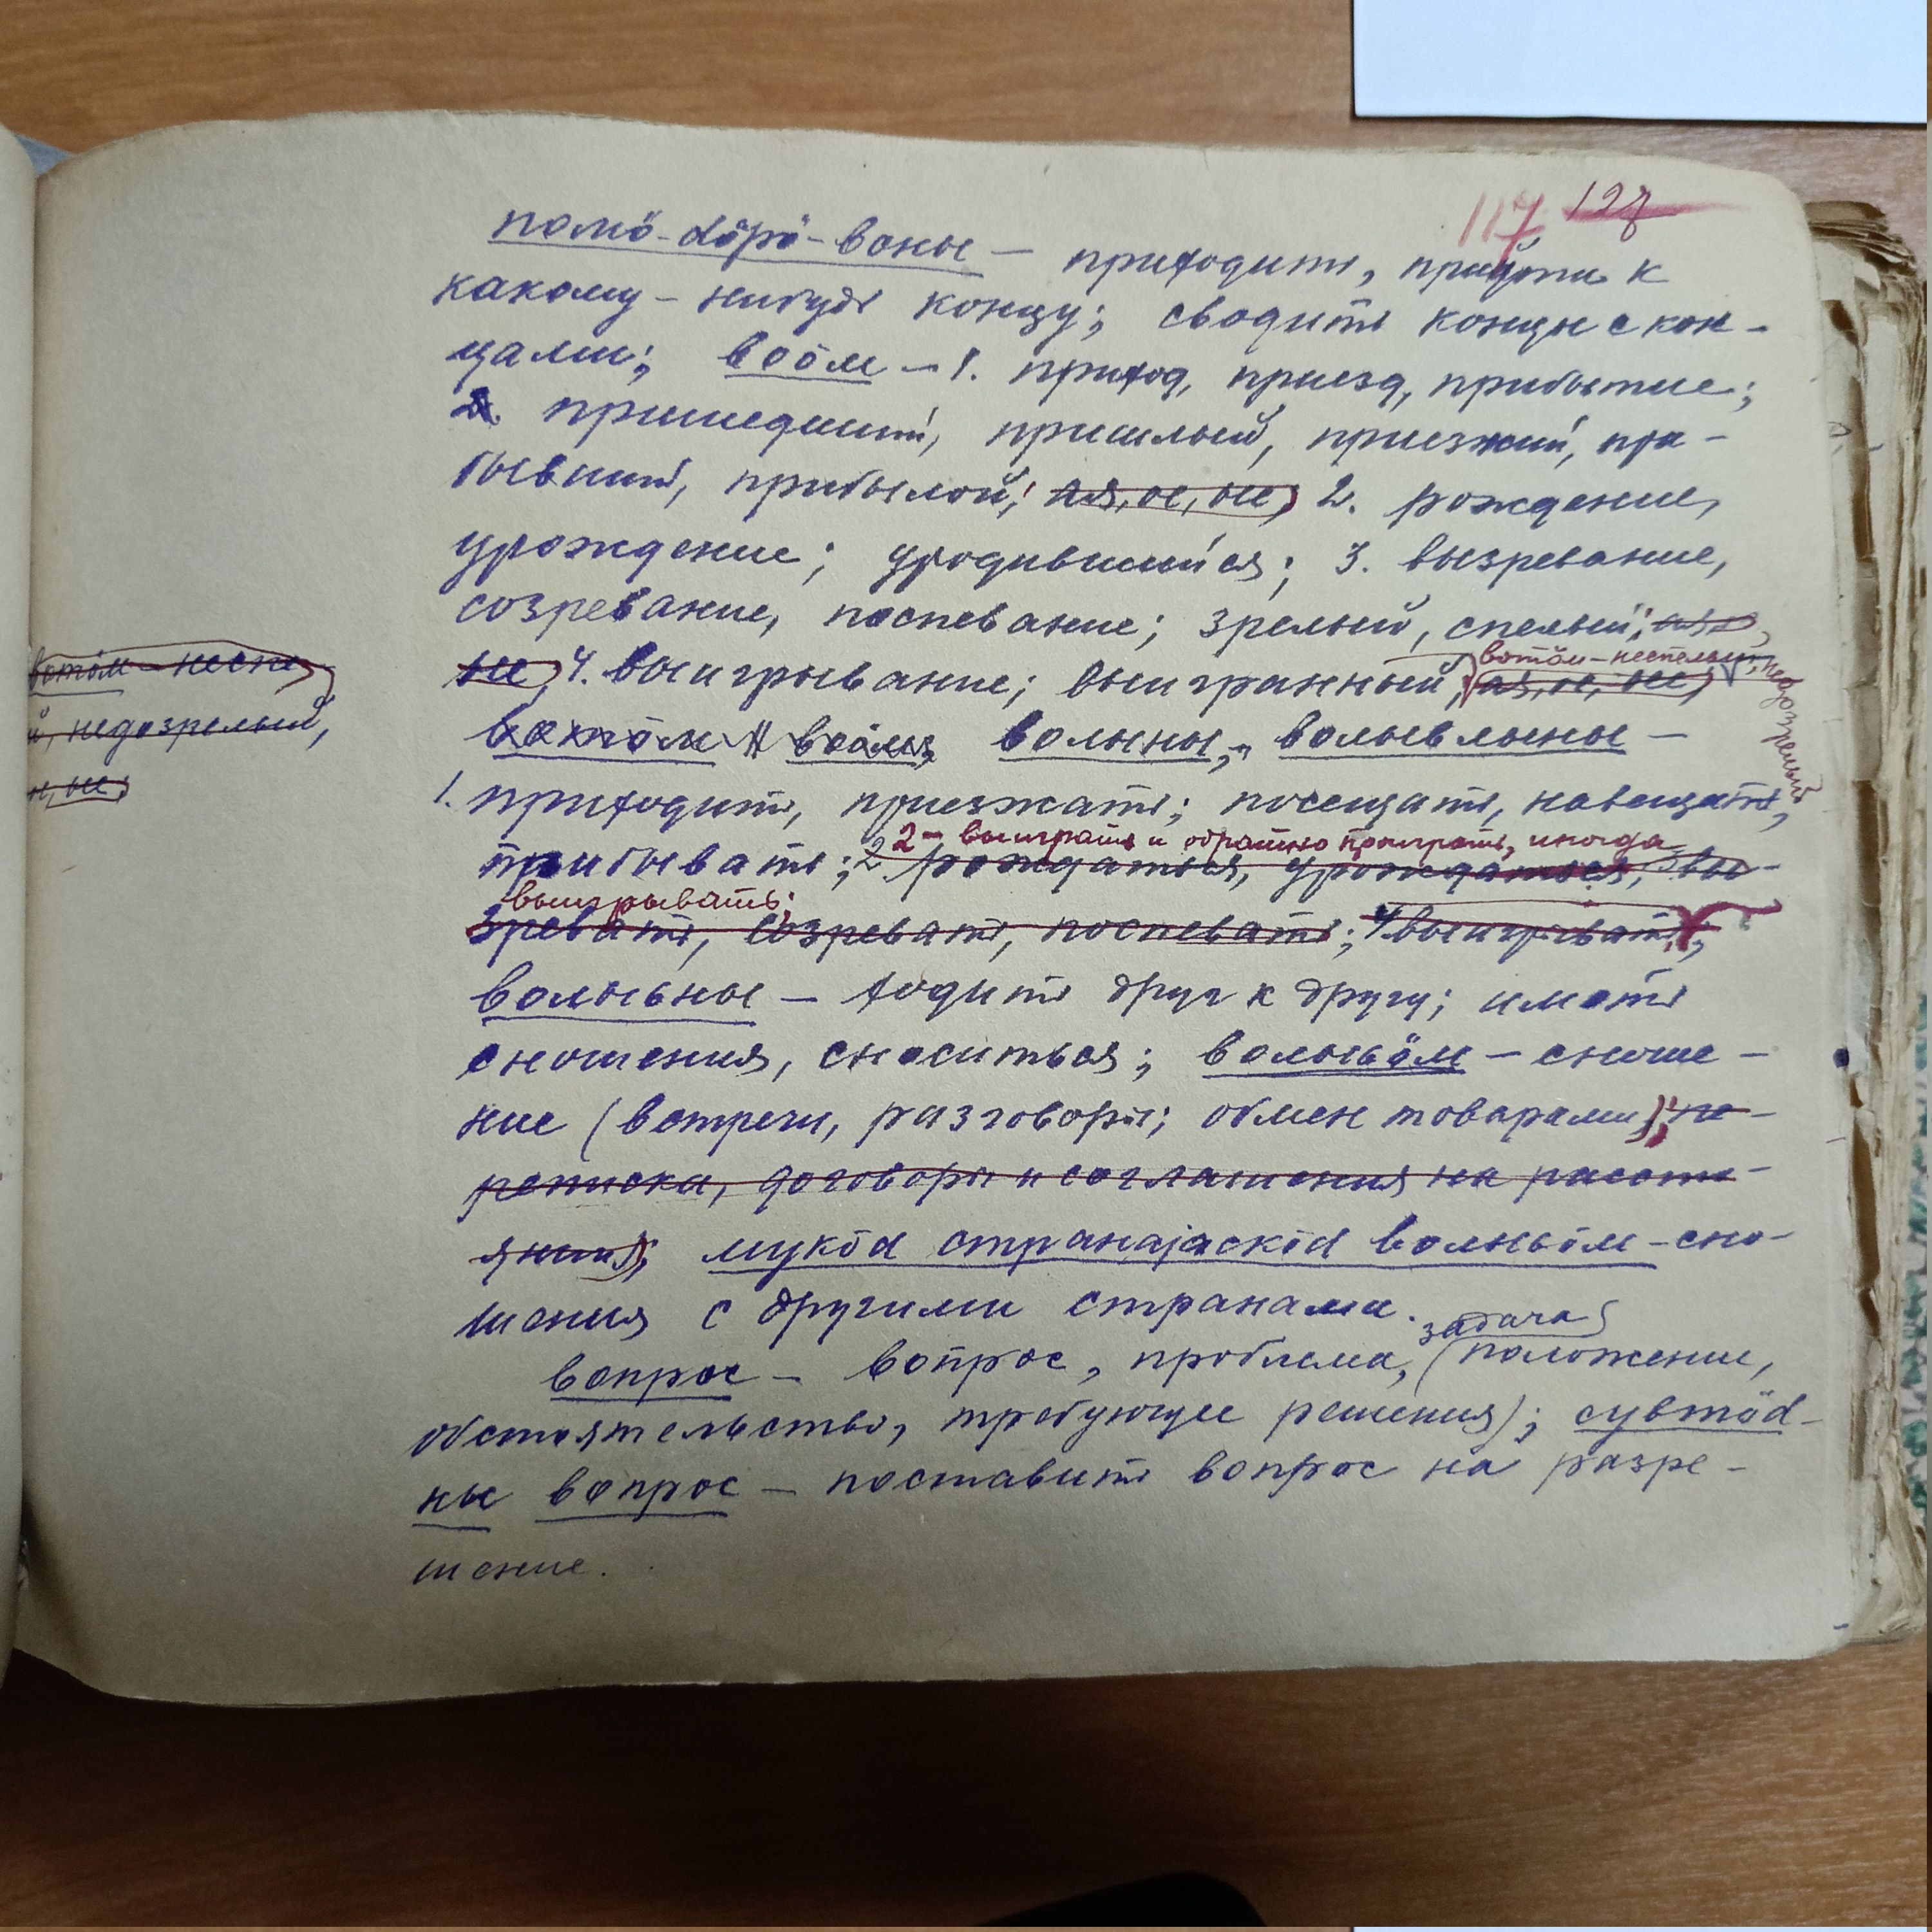 117 128
помӧ-dӧрӧ-воны – приходить, прийти к
какому-нибудь концу; сводить концы с кон-
цами; воӧм – 1. приход, приезд, прибытие;
пришедший, пришлый, приезжий, при-
бывший, прибылой; ая, ое, ые; 2. рождение,
урождение; уродившийся; 3. вызревание,
созревание, поспевание; зрелый, спелый; ая,
ые; 4. выигрывание; выигранный; ая, ое, ые;
вотӧм – неспелый, недозрелый
вотӧм – неспе
й, недозрелый,
ые;
вотӧм воӧм, волыны, волывлыны –
1. приходить, приезжать; посещать, навещать,
прибывать; 2. рождаться, урождаться, вы-
2 – выиграть и обратно проиграть, иногда
выигрывать;
зревать, созревать, поспевать; 4. выигрывать;
волысьны – ходить друг к другу; иметь
сношения, сноситься; волысьӧм – сноше-
ние (встречи, разговоры; обмен товарами); пе-
реписка, договоры и соглашения на рассто-
янии); мукӧd странајаскӧd волысьӧм – сно-
шения с другими странами.
вопрос – вопрос, проблема, задача (положение,
обстоятельство, требующее решения); сувтӧd-
ны вопрос – поставить вопрос на разре-
шение.